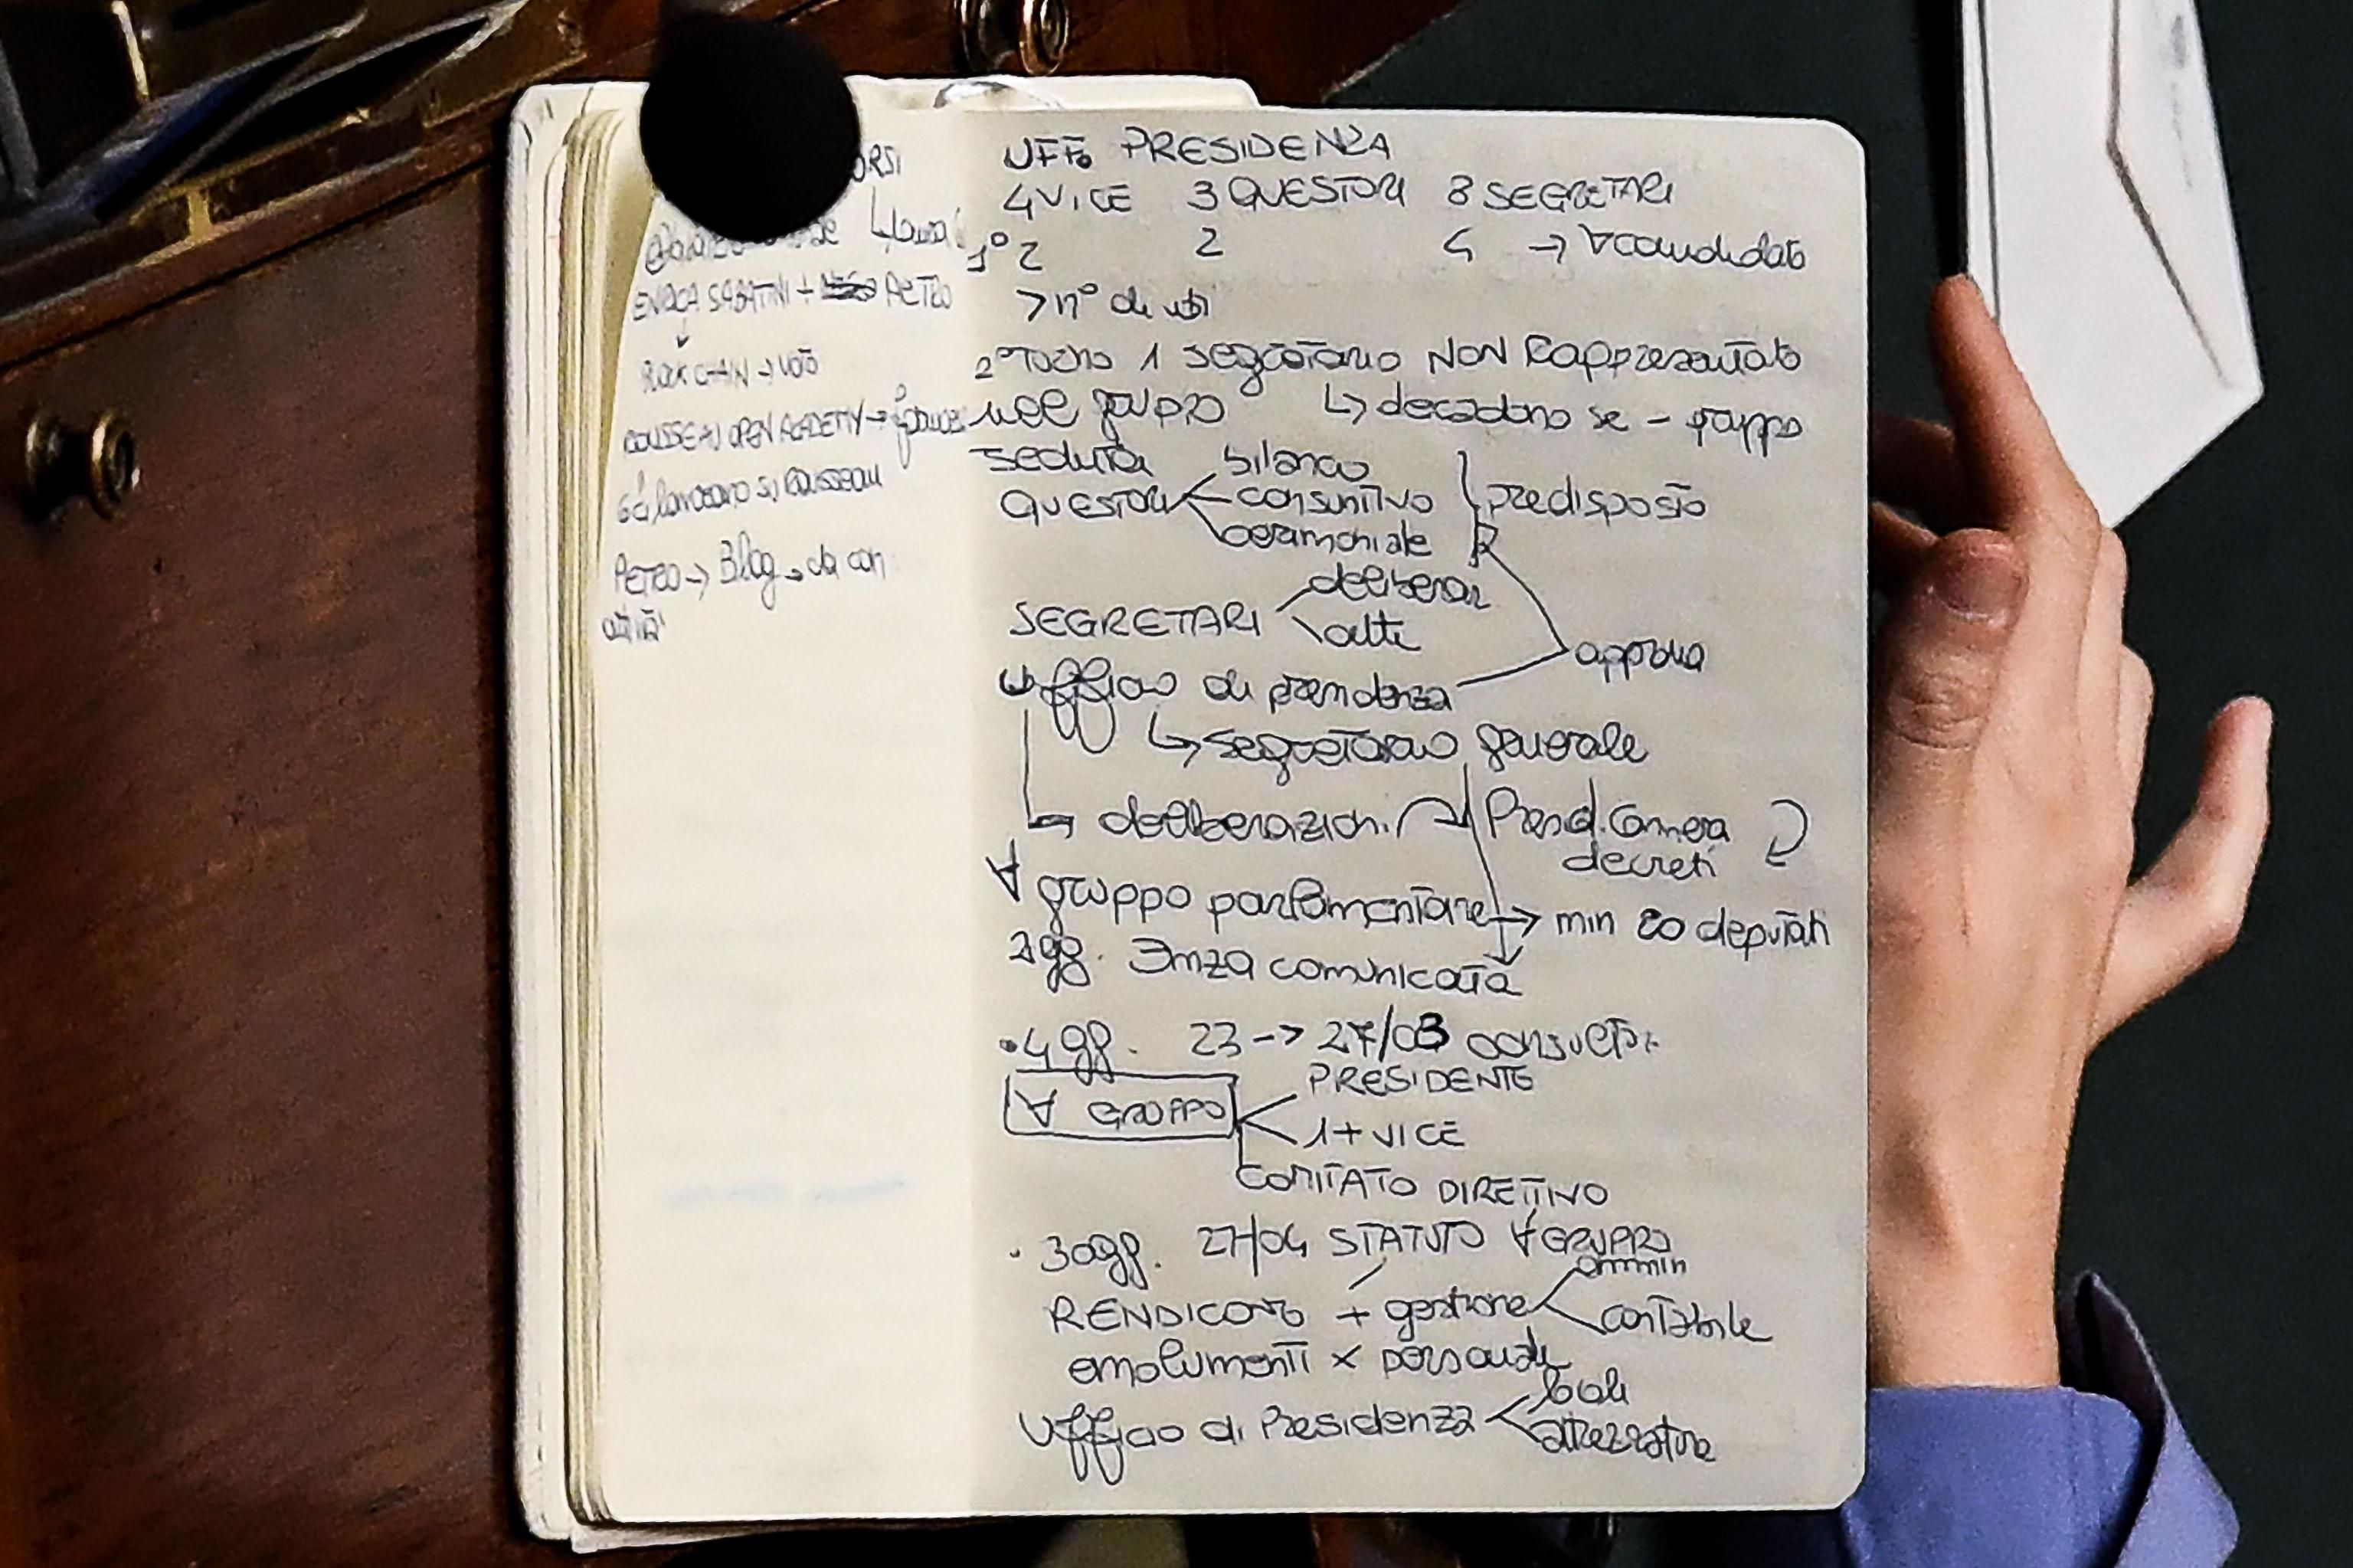 ORSI
ENRICA SABATINI + PIETRO
BLOCKCHAIN → voto
ROUSSEAU OPEN ACADEMY →
6 lavorano su Rousseau
PIETRO → Blog → da con
attività
UFFo PRESIDENZA
4 VICE 3 QUESTORI 8 SEGRETARI
1° 2 2 4 → ∀ candidato
> n° di voti
2° TURNO 1 segretario NON Rappresentato
nel gruppo ↳ decadono se - gruppo
seduta
QUESTORI bilancio
consuntivo predisposto
cerimoniale
SEGRETARI deliberaz
atti
approva
Ufficio di presidenza
↳ segretario generale
→ deliberazioni Presid. Camera
decreti
∀ gruppo parlamentare → min 20 deputati
2gg. 3nza comunicata
• 4 gg. 23 -> 27/03 consultaz.
∀ GRUPPO PRESIDENTE
1 + VICE
COMITATO DIRETTIVO
• 30gg. 27/04 STATUTO ∀ GRUPPO
RENDICONTO + gestione ammin
contabile
emolumenti x personale
Ufficio di Presidenza locali
attrezzature